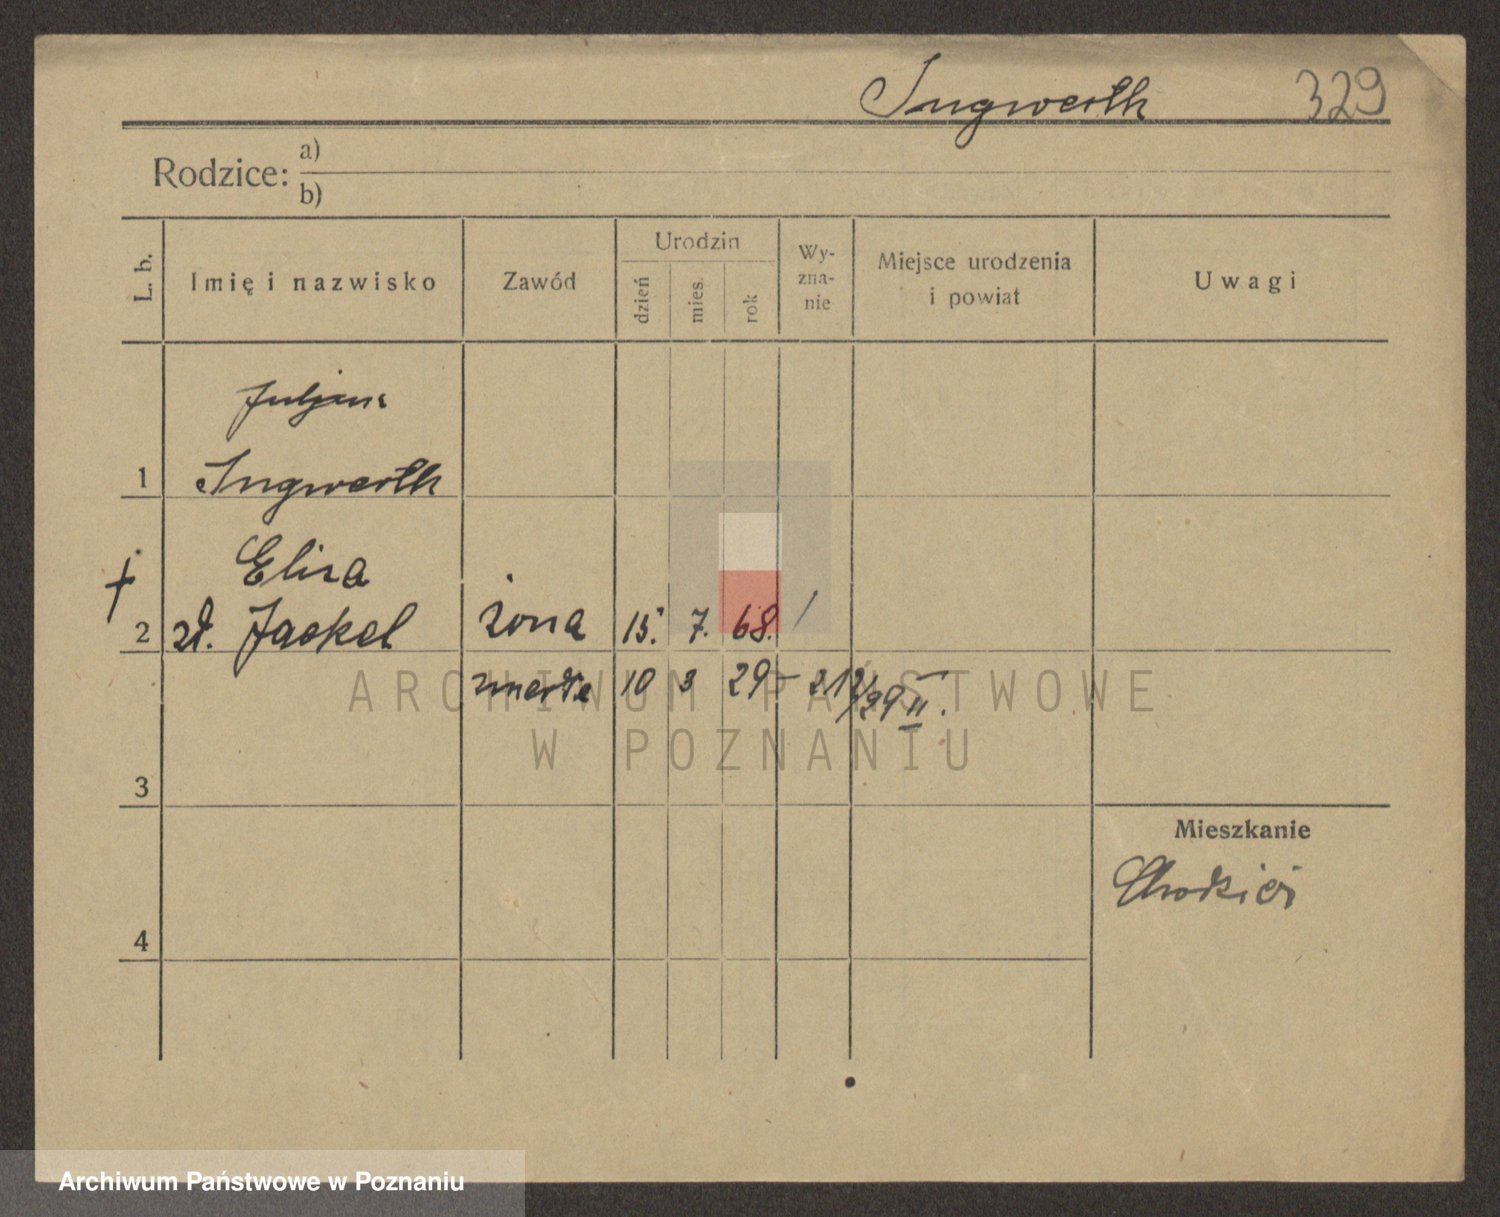 Ingwerth 329
Rodzice: a)
b)
L. b. Imię i nazwisko Zawód Urodzin dzień mies. rok Wy-zna-nie Miejsce urodzenia i powiat Uwagi
Juljan
1 Ingwerth
† Eliza
2 zd. Jaekel żona 15. 7. 68. /
zmarła 10 3 29 – 212/29 II.
ARCHIWUM PAŃSTWOWE
W POZNANIU
3
Mieszkanie
4
Archiwum Państwowe w Poznaniu